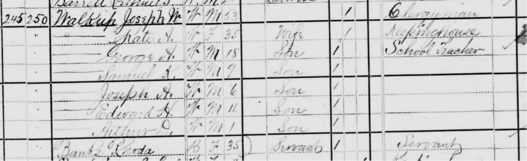 245 250 Walkup Joseph W. W M 53 1 Clergyman
Kate A. W F 35 Wife 1 Keeping house
George A. W M 18 Son 1 School Teacher
Samuel R. W M 9 Son 1
Joseph A. W M 6 Son 1
Edward H. W M 4 Son 1
Arthur D. W M 1 Son 1
Banks B F 35 Servant 1 Servant